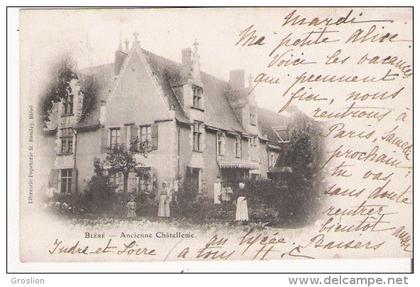 Mardi
Ma petite Alice
Voici les vacances
qui prennent
fin, nous
rentrons à
Paris, Samedi
prochain
vas
sans doute
rentrer
bientôt
au lycée. Baisers
à tous H.
Indre et Loire
BLÉRÉ — Ancienne Châtellenie.
Librairie-Papeterie
Grosilon
www.delcampe.net